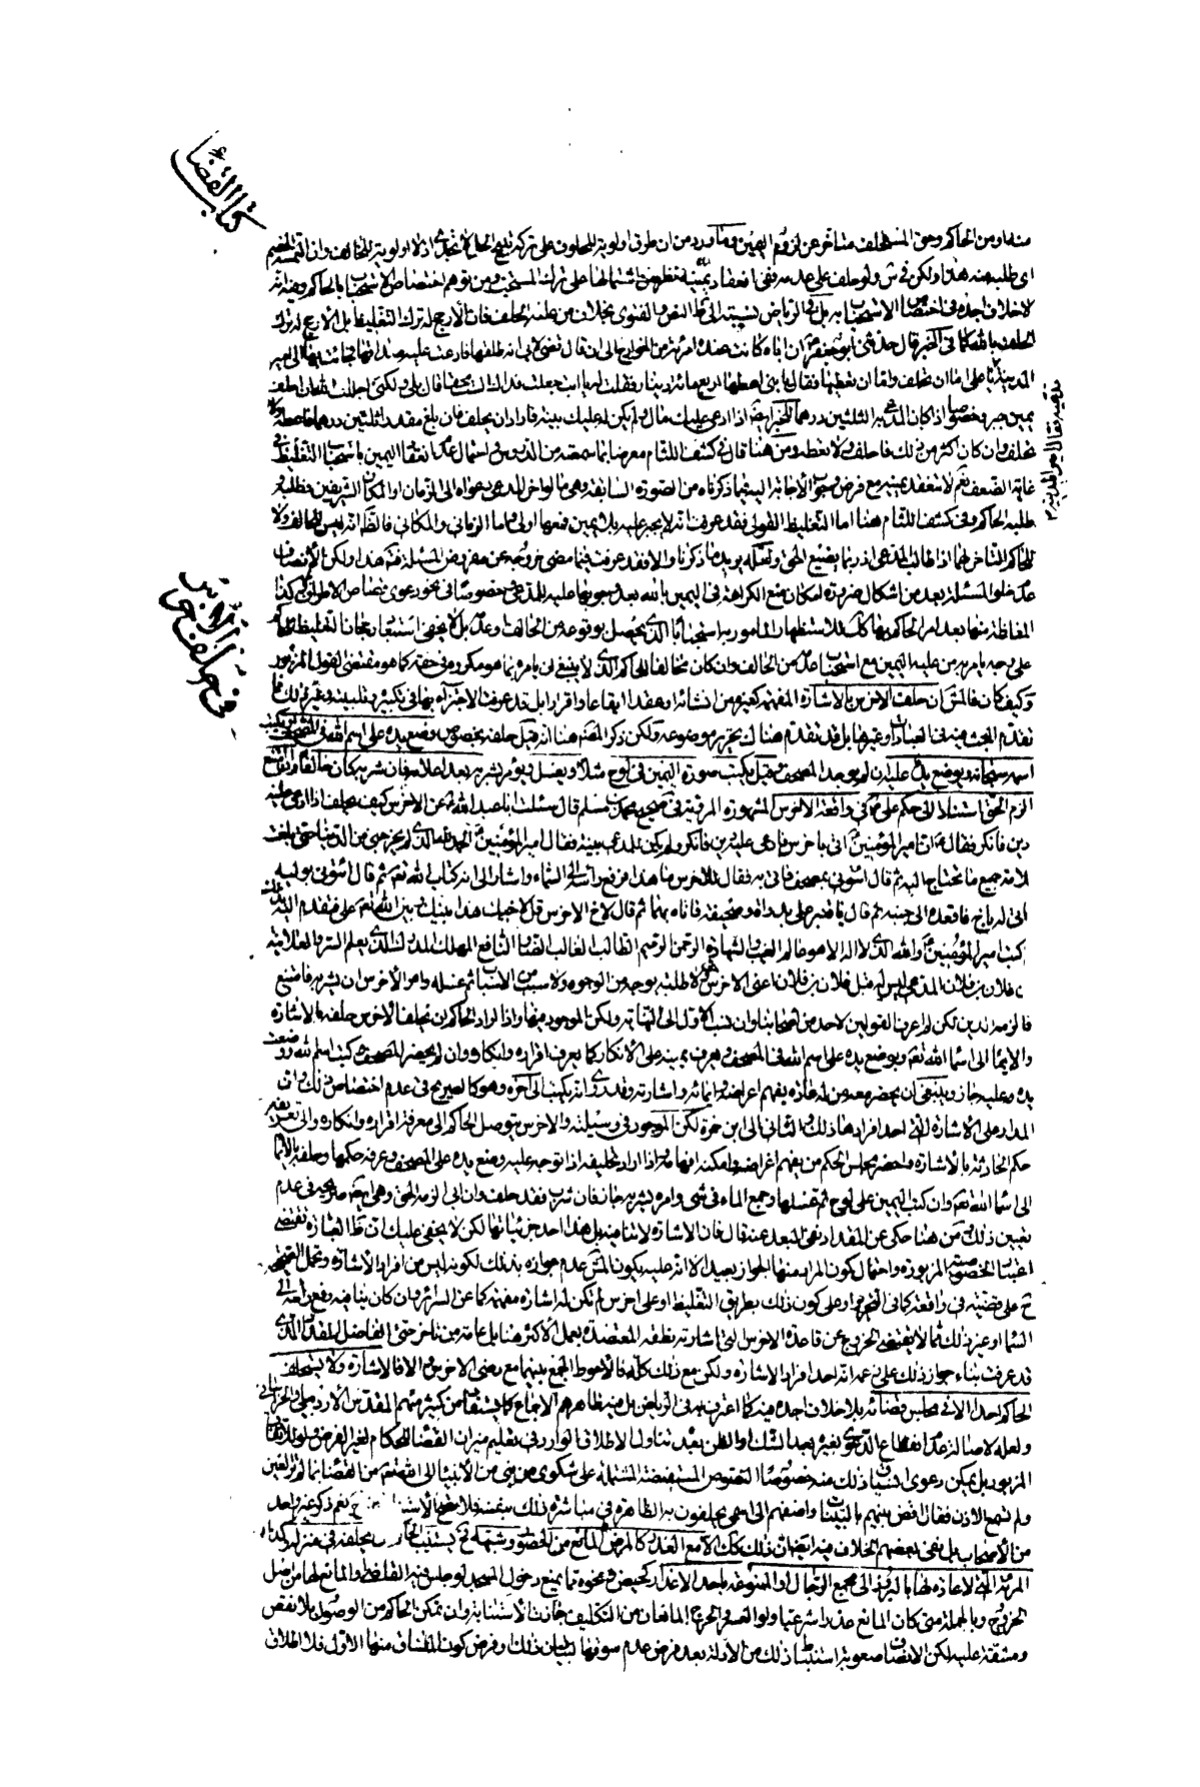 كتاب القضاء
منه او من الحاكم وحق المستحلف متأخر عن لزوم اليمين وما ورد من ان طرق اولوية للحلف على تركه
اى طلبه منه هذا ولكن فى ش ولو حلف على عدمه ففى انعقاد يمينه نظر من اشتمالها على ترك المستحب ومن توهم اختصاص الاستحباب بالحاكم وفيه انه
لا خلاف اجده فى اختصاص الاستحباب به بل فى الرياض نسبته الى ظاهر النص والفتوى بخلاف من عليه الحلف فان الأرجح له ترك التغليظ بل الأرجح له ترك
الحلف بالله كما فى الخبر قال حدثنى ابو جعفر ان اباه كانت عنده امرأة من الخوارج الى ان قال فقضى لابى انه طلقها فادعت عليه صداقها فجاءت به الى امير
المدينة اما ان تحلف واما ان تعطيها فقال يا بنى اعطها اربعمائة دينار فقلت له يا ابت جعلت فداك الست محقا قال بلى ولكنى اجللت الله ان احلف
يمين صبر وخصوصا اذا كان المدعى به الثلثين درهما للخبر ايضا اذا ادعى عليك مال ولم يكن له عليك بينة فاراد ان يحلفك فان بلغ مقدار ثلثين درهما فاعطه ولا
تحلف وان كان اكثر من ذلك فاحلف ولا تعطه ومن هنا قال فى كشف اللثام معرضا بما سمعته من الدروس واحتمال عدم انعقاد اليمين باستحباب التغليظ فى
غاية الضعف نعم لا تنعقد يمينه مع فرض وجوب الاجابة اليه بما ذكرناه من الصورة السابقة وهى ما لو اخر المدعى دعواه الى الزمان او المكان الشريفين فطلب
طلبه الحاكم وفى كشف اللثام هنا اما التغليظ القولى فقد عرفت انه لا يجبر عليه بل يمين فيها اولى واما الزمانى والمكانى فالظاهر انه ليس للحالف ولا
للحاكم التأخر لهما اذا طالب المدعى اذ ربما يضيع الحق ولعله يؤيد ما ذكرنا والا فقد عرفت فيما مضى خروجه عن مفروض المسئلة هذا ولكن الأنصاف
عدم خلو المسئلة بعد من اشكال ضرورة امكان منع الكراهة فى اليمين بالله بعد وجوبها عليه للمدعى خصوصا فى نحو دعوى قصاص الاطراف وكذا
المغلظة منها بعد امر الحاكم بها كل ذلك للاستظهار المأمور به استحبابا الذى يحصل بوقوعه من الحالف وعدمه بل لا يخفى استبعاد رجحان التغليظ للحاكم
على وجه يأمر به من عليه اليمين مع استحباب عدمه من الحالف وان كان مخالفا للحاكم الذى لا ينبغى ان يأمره بما هو مكروه فى حقه كما هو مقتضى القول المزبور
وكيف كان فالمش ان حلف الاخرس بالاشارة المفهمة كغيره من انشائه وعقده وايقاعه واقراره بل قد عرفت الاجتزاء بها فى تكبيره وتلبيته وغير ذلك مما
تقدم البحث فيه فى العبادات وغيرها بل قد تقدم هناك تحرير موضوعه ولكن ذكر المصنف هنا انه قيل حلفه بخصوص وضع يده على اسم الله فى المصحف او يكتب
اسمه سبحانه ويوضع يده عليه ان لم يوجد المصحف وقيل يكتب صورة اليمين فى لوح مثلا ويغسل ويؤمر بشربه بعد اعلامه فان شربه كان حالفا وان امتنع
الزم الحق استنادا الى حكم على ع فى واقعة الاخرس المشهورة المروية فى صحيح محمد بن مسلم قال سئلت ابا عبد الله ع عن الاخرس كيف يحلف اذا ادعى عليه
دين فانكر فقال ان امير المؤمنين ع اتى باخرس فادعى عليه دين فانكر ولم يكن للمدعى بينة فقال امير المؤمنين ع الحمد لله الذى لم يخرجنى من الدنيا حتى بينت
للامة جميع ما تحتاج اليه ثم قال ائتونى بمصحف فاتى به فقال للاخرس ما هذا فرفع رأسه الى السماء واشار الى انه كتاب الله تعالى ثم قال ائتونى بوليه
فاتى له باخ فاقعده الى جنبه ثم قال يا قنبر على بدواة وصحيفة فاتاه بهما ثم قال لاخ الاخرس قل لاخيك هذا بينك وبين الله تعالى فتقدم اليه بذلك
كتب امير المؤمنين ع والله الذى لا اله الا هو عالم الغيب والشهادة الرحمن الرحيم الطالب الغالب الضار النافع المهلك المدرك الذى يعلم السر والعلانية
ان فلان بن فلان المدعى ليس له قبل فلان بن فلان اعنى الاخرس حق ولا طلبة بوجه من الوجوه ولا سبب من الاسباب ثم غسله وامر الأخرس ان يشربه فامتنع
فالزمه الدين لكن لم اعرف القولين لاحد من اصحابنا وان نسب الأول الى النهاية ولكن الموجود فيها واذا اراد الحاكم ان يحلف الأخرس حلفه بالاشارة
والايماء الى اسماء الله تعالى ويوضع يده على اسم الله فى المصحف ويعرف يمينه على الانكار كما يعرف اقراره وانكاره وان لم يحضر المصحف كتب اسم الله ووضعت
يده عليه جاز وينبغى ان يحضر معه من له عادة بفهم اغراضه وايمائه واشارته وقد روى انه يكتب الى آخره وهو كالصريح فى عدم اختصاص ذلك وان
المدار على الاشارة التى احد افرادها ذلك والثانى الى ابن حمزة لكن الموجود فى وسيلته والاخرس يتوصل الحاكم الى معرفة اقراره وانكاره والى تعريفه
حكم الحادثة بالاشارة واحضر مجلس الحكم من يفهم اغراضه وامكنه افهامه واذا اراد تحليفه اذا توجه عليه وضع يده على المصحف وعرفه حكمها وحلفه بالايماء
الى اسماء الله تعالى وان كتب اليمين على لوح ثم غسلها وجمع الماء فى شئ وامره بشربه جاز فان شرب فقد حلف وان ابى الزمه الحق وهى ايضا صريحة فى عدم
تعيين ذلك ومن هنا حكى عن المقداد نفى البعد عنه قال فان الاشارة لا تنافيه بل هذا احد جزئياتها لكن لا يخفى عليك ان ظاهر العبارة تقتضى
اعتبار الخصوصية المزبورة واحتمال كون المراد منها الجواز بعيد الا انه عليه يكون المش عدم جوازه بذلك لكونه ليس من افراد الأشارة وتحمل الصحيح
ح على قضية فى واقعة كما فى التحرير او على كون ذلك بطريق التغليظ او على اخرس لم تكن له اشارة مفهمة كما عن السرائر وان كان ينافيه رفع رأسه الى
السماء وغير ذلك مما لا يقتضى الخروج عن قاعدة الاخرس التى اشارته بنطقه المعتضدة بعمل الأكثر هنا بل عامة من تأخر حتى الفاضل المقداد الذى
قد عرفت بناء جواز ذلك على زعمه انه احد افراد الاشارة ولكن مع ذلك كله فالاحوط الجمع بينهما مع رضى الاخرس والا فالاشارة ولا يستحلف
الحاكم احدا الا فى مجلس قضائه بلا خلاف اجده فيه كما اعترف به فى الرياض بل فيه ظاهرهم الاجماع كما يستفاد من كثير منهم المقدس الاردبيلى والخراسانى
ولعله لاصالة عدم انقطاع الدعوى بغيره بعد الشك او الظن بعدم تناول الاطلاق الوارد فى تعليم ميزان القضاء للحكام لغير الفرض
المزبور بل يمكن دعوى انسياق ذلك منه خصوصا النصوص المستفيضة المشتملة على شكوى من نبى من الأنبياء الى الله تعالى من القضاء بما لم تر العين
ولم تسمع الاذن فقال اقض بينهم بالبينات واضفهم الى اسمى يحلفون به الظاهرة فى مباشرة ذلك بنفسه نعم ذكر غير واحد
من الأصحاب بل نفى بعضهم الخلاف فيه ايضا ان ذلك كك الا مع العذر كالمرض المانع من الحضور وشبهه فح يستنيب الحاكم من يحلفه فى منزله وكذا
المرأة التى لا عادة لها بالبروز الى مجمع الرجال او الممنوعة باحد الاعذار كحيض ونحوه مما يمنع دخول المسجد لو جلس فيه القاضى والمانع لها من اصل
الخروج وبالجملة متى كان المانع عذرا شرعيا ولو العسر والحرج المانعان من التكليف جازت الاستنابة وان تمكن الحاكم من الوصول بلا نقص
ومشقة عليه لكن الانصاف صعوبة استنباط ذلك من الادلة بعد فرض عدم سوقها لبيان ذلك وفرض كون المنساق منها الأول فلا اطلاق
فى حلف الاخرس